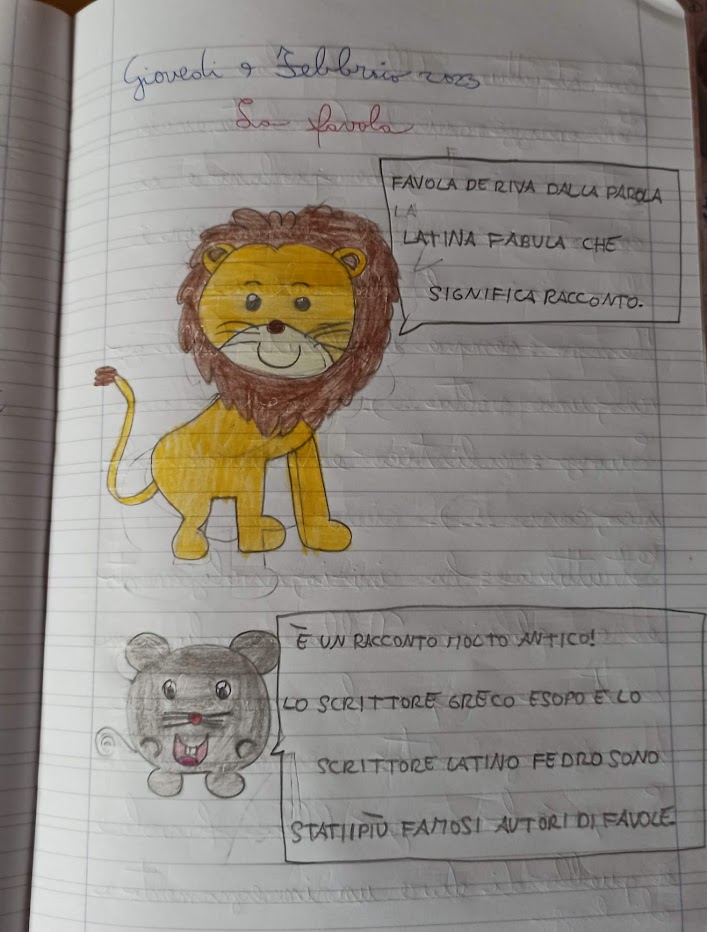 Giovedì 9 Febbraio 2023
La favola
FAVOLA DERIVA DALLA PAROLA
LA
LATINA FABULA CHE
SIGNIFICA RACCONTO.
È UN RACCONTO MOLTO ANTICO!
LO SCRITTORE GRECO ESOPO E LO
SCRITTORE LATINO FEDRO SONO
STATI I PIÙ FAMOSI AUTORI DI FAVOLE